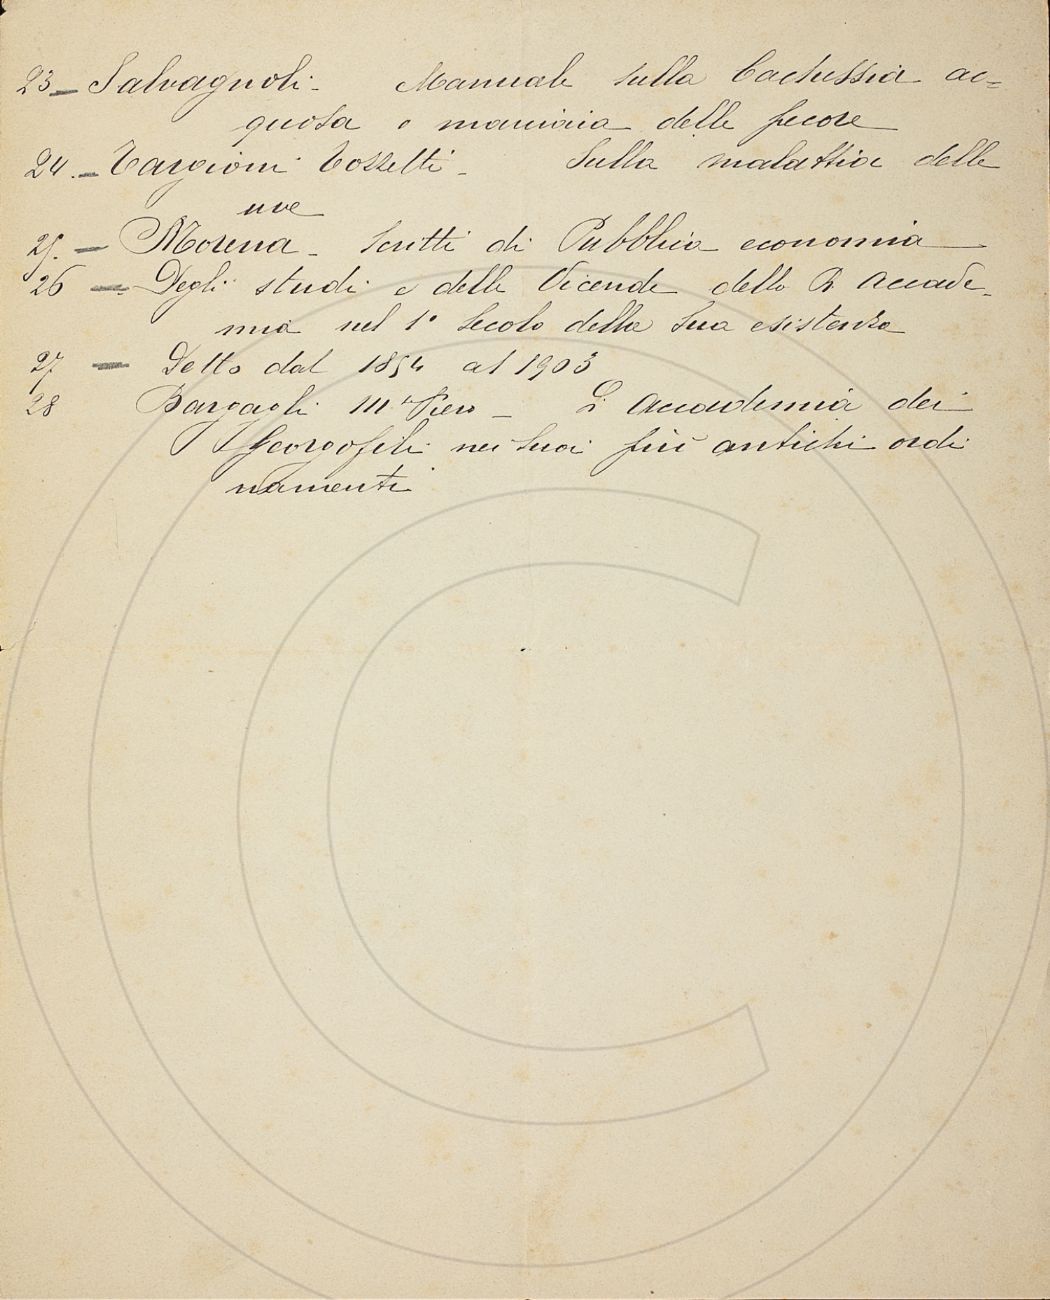 23 - Salvagnoli - Manuale sulla Cachessia ac=
quosa o marciaia delle pecore
24. - Targioni Tozzetti - Sulla malattia delle
uve
25. - Morena - Scritti di Pubblica economia
26 - Degli studi e delle Vicende della R. Accade-
mia nel 1° Secolo della Sua esistenza
27 - Detto dal 1854 al 1903
28 Bargagli Piero - L'Accademia dei
Georgofili nei Suoi più antichi ordi
namenti